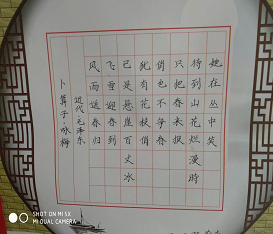 卜算子·咏梅
近代 毛泽东
风雨送春归
飞雪迎春到
已是悬崖百丈冰
犹有花枝俏
俏也不争春
只把春来报
待到山花烂漫時
她在丛中笑
SHOT ON MI 5X
MI DUAL CAMERA